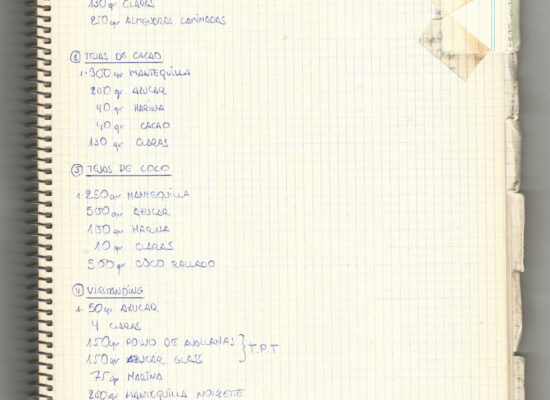 130 gr CLARAS
250 gr ALMENDRAS LAMINADAS
② TEJAS DE CACAO
1- 300 gr MANTEQUILLA
200 gr AZUCAR
40 gr HARINA
40 gr CACAO
130 gr CLARAS
③ TEJAS DE COCO
1- 250 gr MANTEQUILLA
500 gr AZUCAR
100 gr HARINA
10 gr CLARAS
500 gr COCO RALLADO
④ VISSTANDING
1- 50 gr AZUCAR
4 CLARAS
150 gr POLVO DE AVELLANAS
150 gr AZUCAR GLASS } T.P.T
75 gr HARINA
200 gr MANTEQUILLA NOISETTE